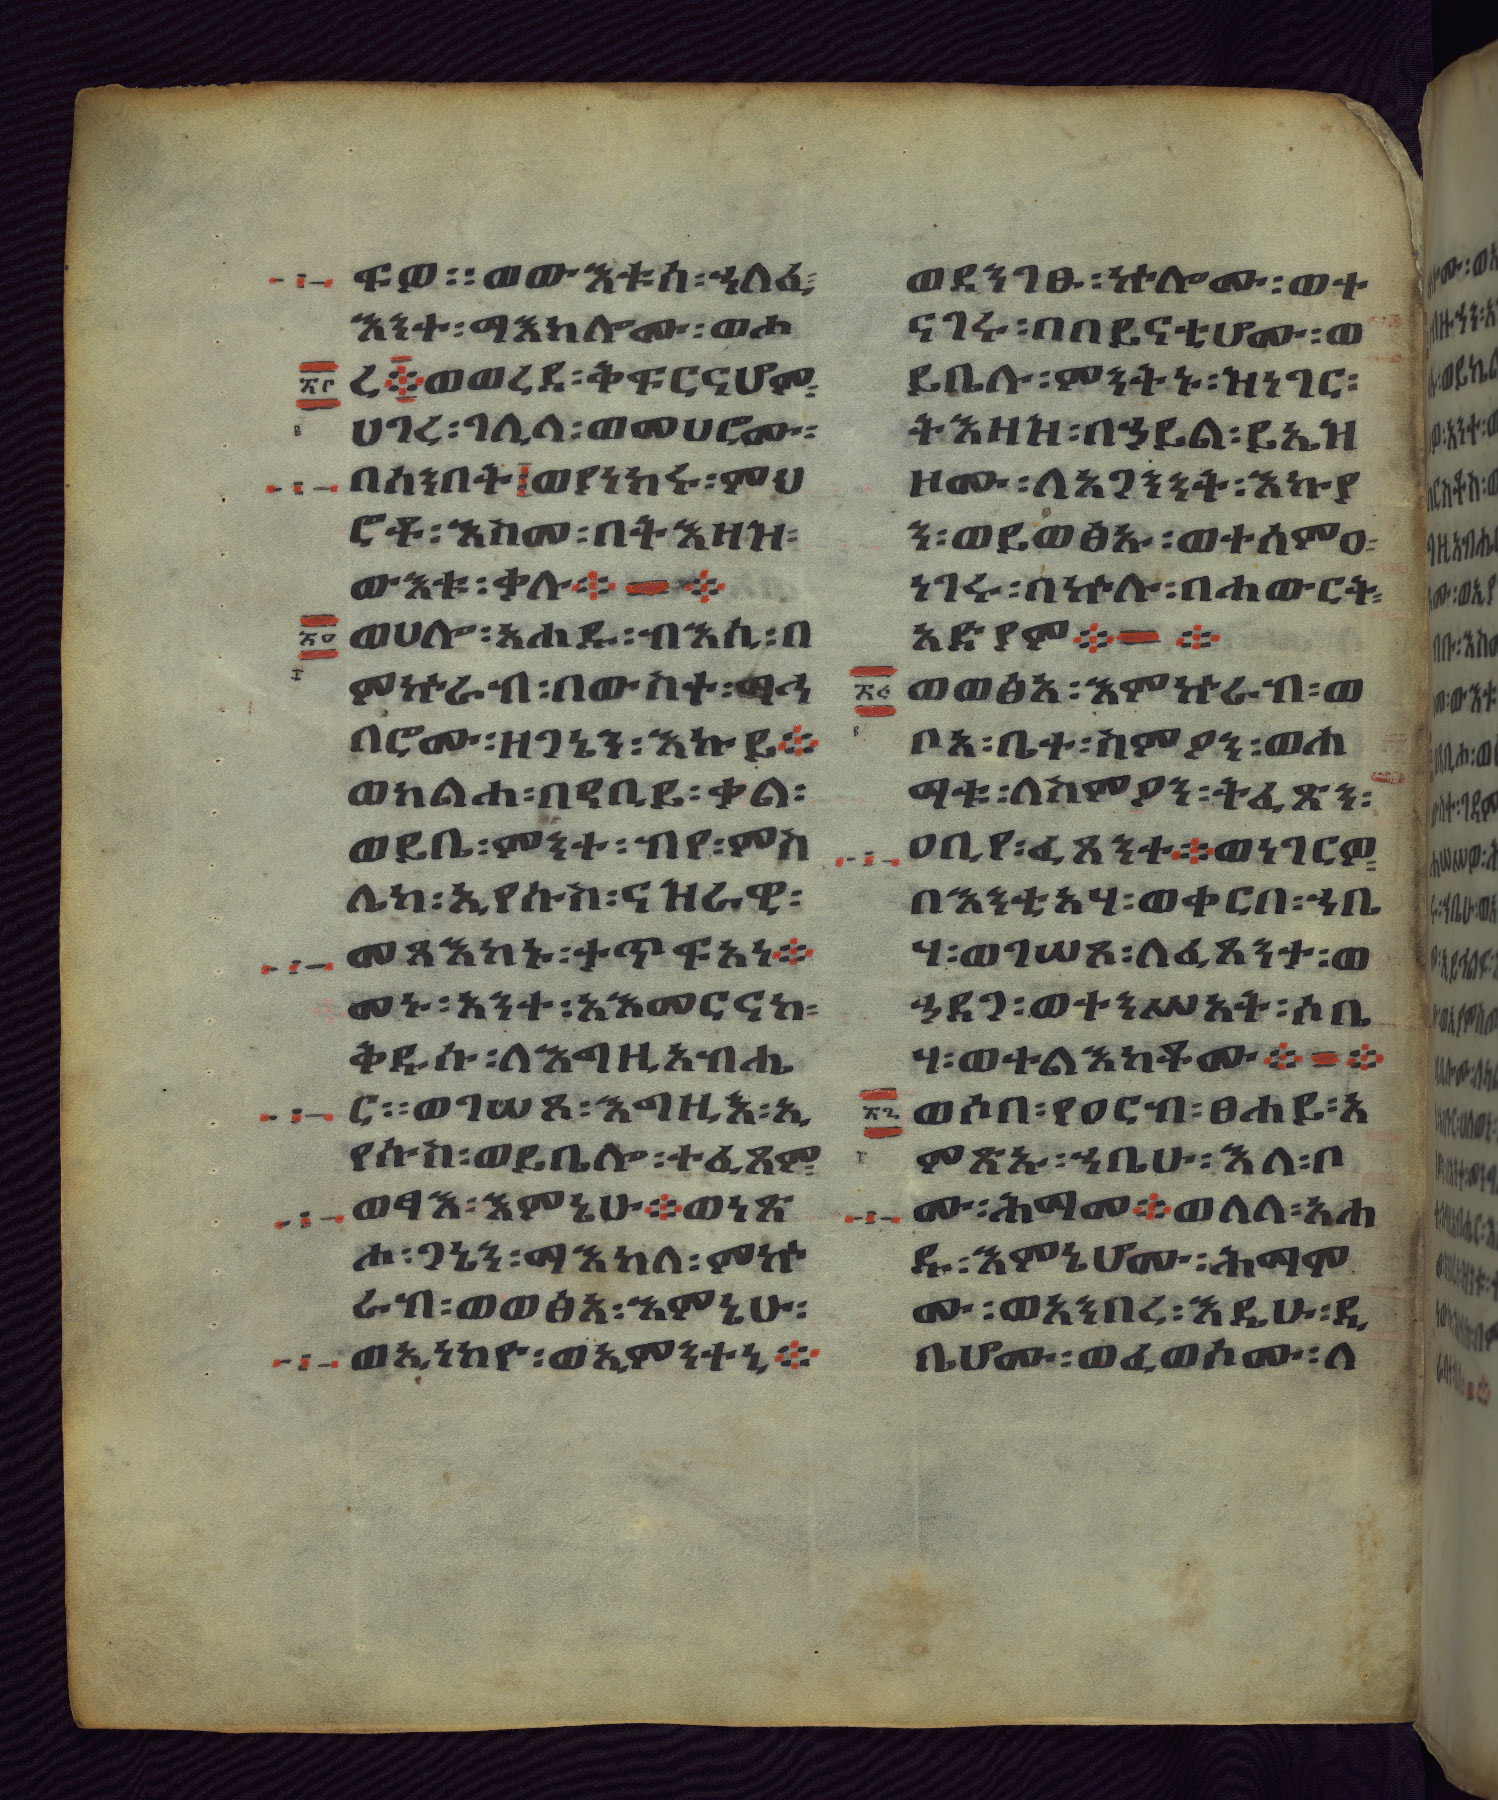 ፍዎ፡፡ወውእቱሰ፡ኀለፈ፡
እንተ፡ማእከሎሙ፡ወሐ
ረ፨ወወረደ፡ቅፍርናሆም፡
ሀገረ፡ገሊላ፡ወመሀሮሙ፡
በሰንበት፡ወየንክሩ፡ምህ
ሮቶ፡እስመ፡በትእዛዝ፡
ውእቱ፡ቃሉ፨ ፨
ወሀሎ፡አሐዱ፡ብእሲ፡በ
ምኵራብ፡በውስተ፡ማኅ
በሮሙ፡ዘጋኔን፡እኩይ፨
ወከልሐ፡በዓቢይ፡ቃል፡
ወይቤ፡ምንተ፡ብየ፡ምስ
ሌከ፡ኢየሱስ፡ናዝራዊ፡
መጻእከኑ፡ታጥፍአነ፨
መኑ፡አንተ፡አአመርናከ፡
ቅዱሱ፡ለእግዚአብሔ
ር፡፡ወገሠጾ፡እግዚእ፡ኢ
የሱስ፡ወይቤሎ፡ተፈጸም፡
ወፃእ፡እምኔሁ፨ወነጽ
ሐ፡ጋኔን፡ማእከለ፡ምኵ
ራብ፡ወወፅአ፡እምኔሁ፡
ወኢነከዮ፡ወኢምንተኒ፨
ወደንገፁ፡ኵሎሙ፡ወተ
ናገሩ፡በበይናቲሆሙ፡ወ
ይቤሉ፡ምንትኑ፡ዝነገር፡
ትእዛዝ፡በኃይል፡ይኤዝ
ዞሙ፡ለአጋንንት፡እኩያ
ን፡ወይወፅኡ፡ወተሰምዐ፡
ነገሩ፡በኵሉ፡በሐውርት፡
አድያም፨ ፨
ወወፅአ፡እምኵራብ፡ወ
ቦአ፡ቤተ፡ስምዖን፡ወሐ
ማቱ፡ለስምዖን፡ትፈጽን፡
ዐቢየ፡ፈጸንተ፨ወነገርዎ፡
በእንቲአሃ፡ወቀርበ፡ኀቤ
ሃ፡ወገሠጾ፡ለፈጸንተ፡ወ
ኃደጋ፡ወተንሥአት፡ሶቤ
ሃ፡ወተልእከቶሙ፨ ፨
ወሶበ፡የዐርብ፡ፀሐይ፡አ
ምጽኡ፡ኀቤሁ፡እለ፡ቦ
ሙ፡ሕማመ፨ወለለ፡አሐ
ዱ፡እምኔሆሙ፡ሕማም
ሙ፡ወአንበረ፡እዴሁ፡ዲ
ቤሆሙ፡ወፈወሶሙ፡ለ